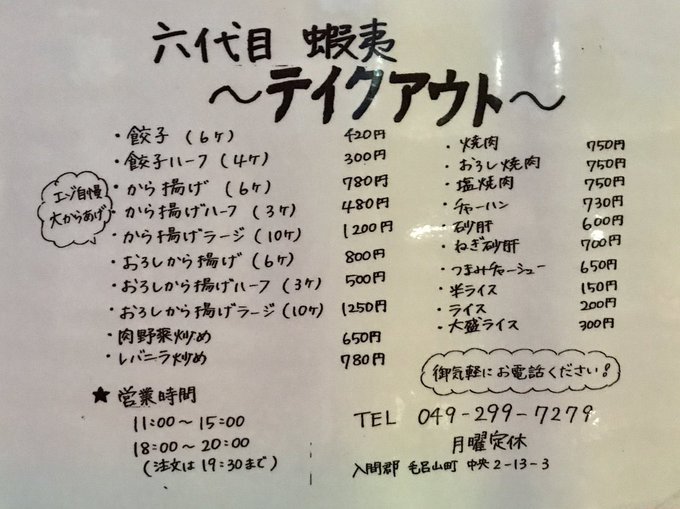 六代目 蝦夷
～テイクアウト～
・餃子 (6ケ) 420円
・餃子ハーフ (4ケ) 300円
・から揚げ (6ケ) 780円
・から揚げハーフ (3ケ) 480円
・から揚げラージ (10ケ) 1200円
・おろしから揚げ (6ケ) 800円
・おろしから揚げハーフ (3ケ) 500円
・おろしから揚げラージ (10ケ) 1250円
・肉野菜炒め 650円
・レバニラ炒め 780円
エゾ自慢
大からあげ
・焼肉 750円
・おろし焼肉 750円
・塩焼肉 750円
・チャーハン 730円
・砂肝 600円
・ねぎ砂肝 700円
・つまみチャーシュー 650円
・半ライス 150円
・ライス 200円
・大盛ライス 300円
御気軽にお電話ください!
★ 営業時間
11:00～15:00
18:00～20:00
(注文は19:30まで)
TEL 049-299-7279
月曜定休
入間郡 毛呂山町 中央2-13-3